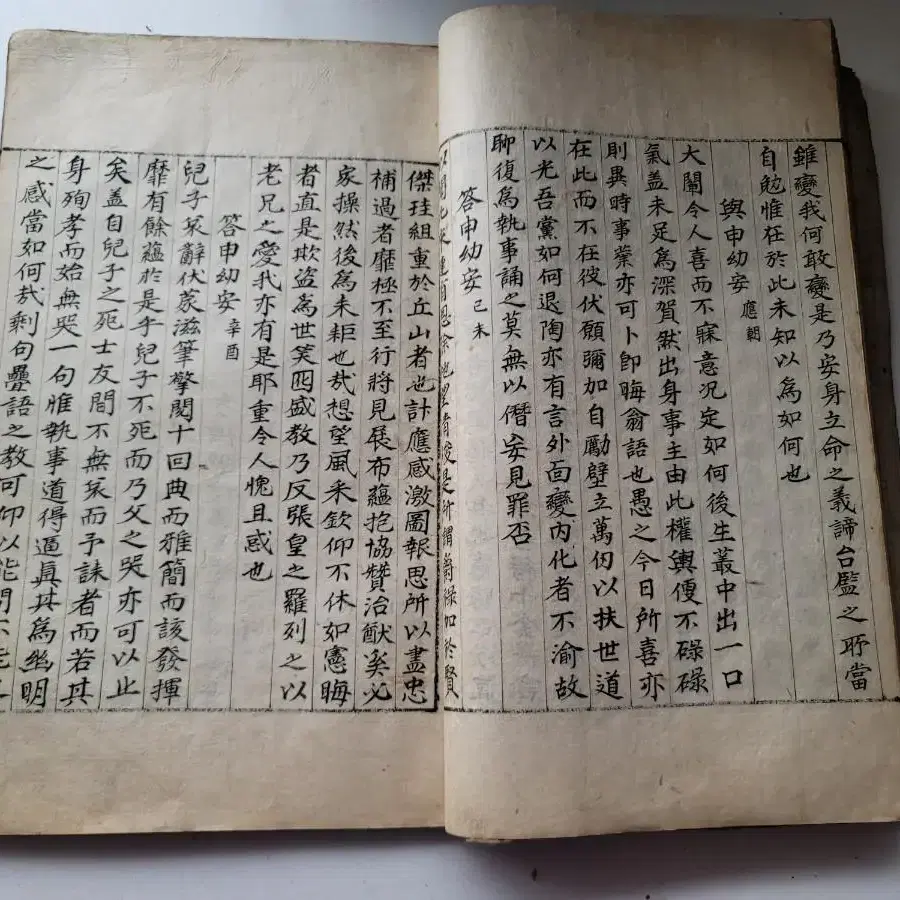 雖變我何敢變是乃安身立命之義諦台監之所當
自勉惟在於此未知以為如何也
與申幼安 應朝
大闡令人喜而不寐意況定如何後生叢中出一口
氣盖未足為深賀然出身事主由此權輿便不碌碌
則異時事業亦可卜卽晦翁語也愚之今日所喜亦
在此而不在彼伏願彌加自勵壁立萬仞以扶世道
以光吾黨如何退陶亦有言外面變內化者不渝故
聊復為執事誦之莫無以僭妄見罪否
答申幼安 己未
加於賢
傑珪組重於丘山者也計應感激圖報思所以盡忠
補過者靡極不至行將見展布蘊抱協贊治猷奚必
家操然後為未耟也哉想望風采欽仰不休如憲晦
者直是欺盜為世笑囮盛教乃反張皇之羅列之以
老兄之愛我亦有是耶重令人愧且惑也
答申幼安 辛酉
兒子哀辭伏蒙滋筆擎閱十回典而雅簡而該發揮
靡有餘蘊於是乎兒子不死而乃父之哭亦可以止
矣盖自兒子之死士友間不無哀而予誄者而若其
身殉孝而始無哭一句惟執事道得逼眞其為幽明
之感當如何哉剩句疊語之教可仰以能問不